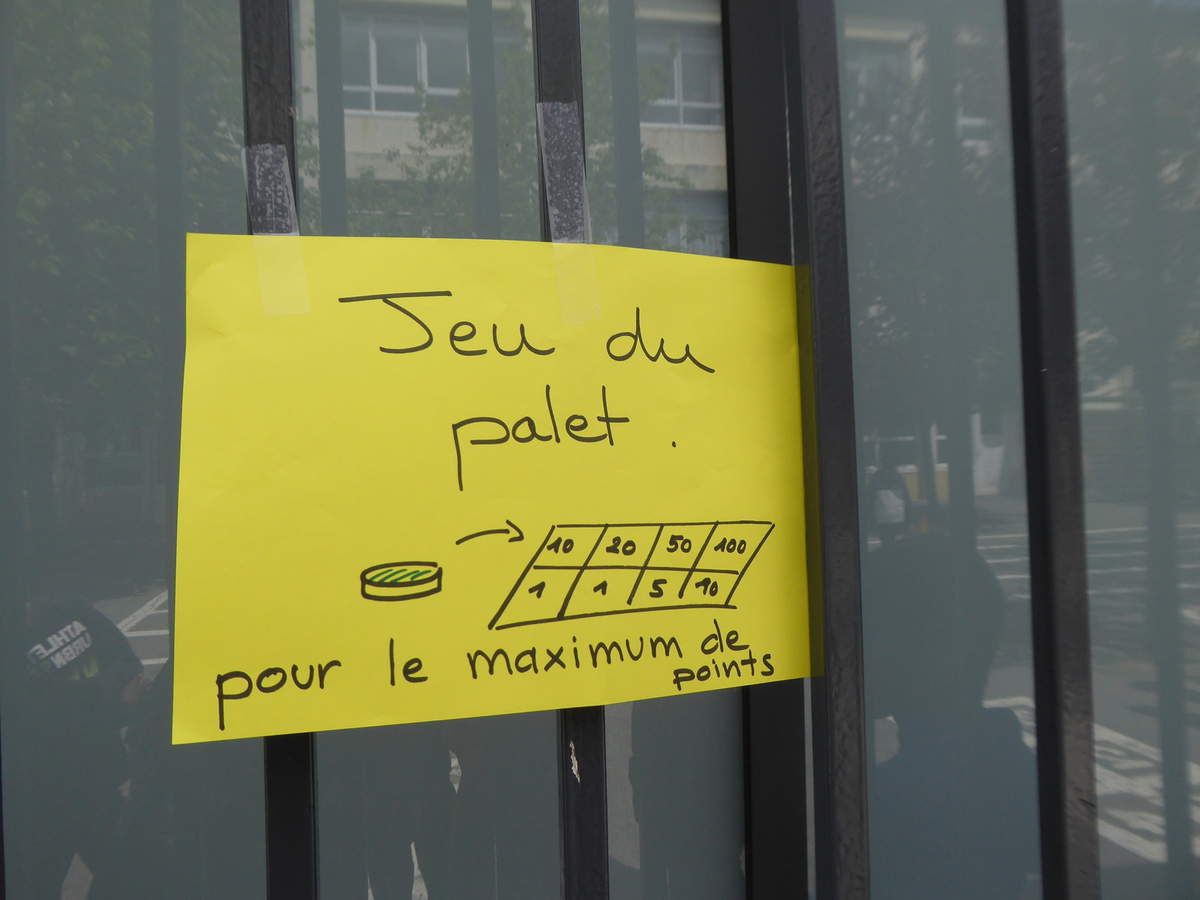 Jeu du
palet.
10 20 50 100
1 1 5 10
pour le maximum de
points
ATHLE
URBN